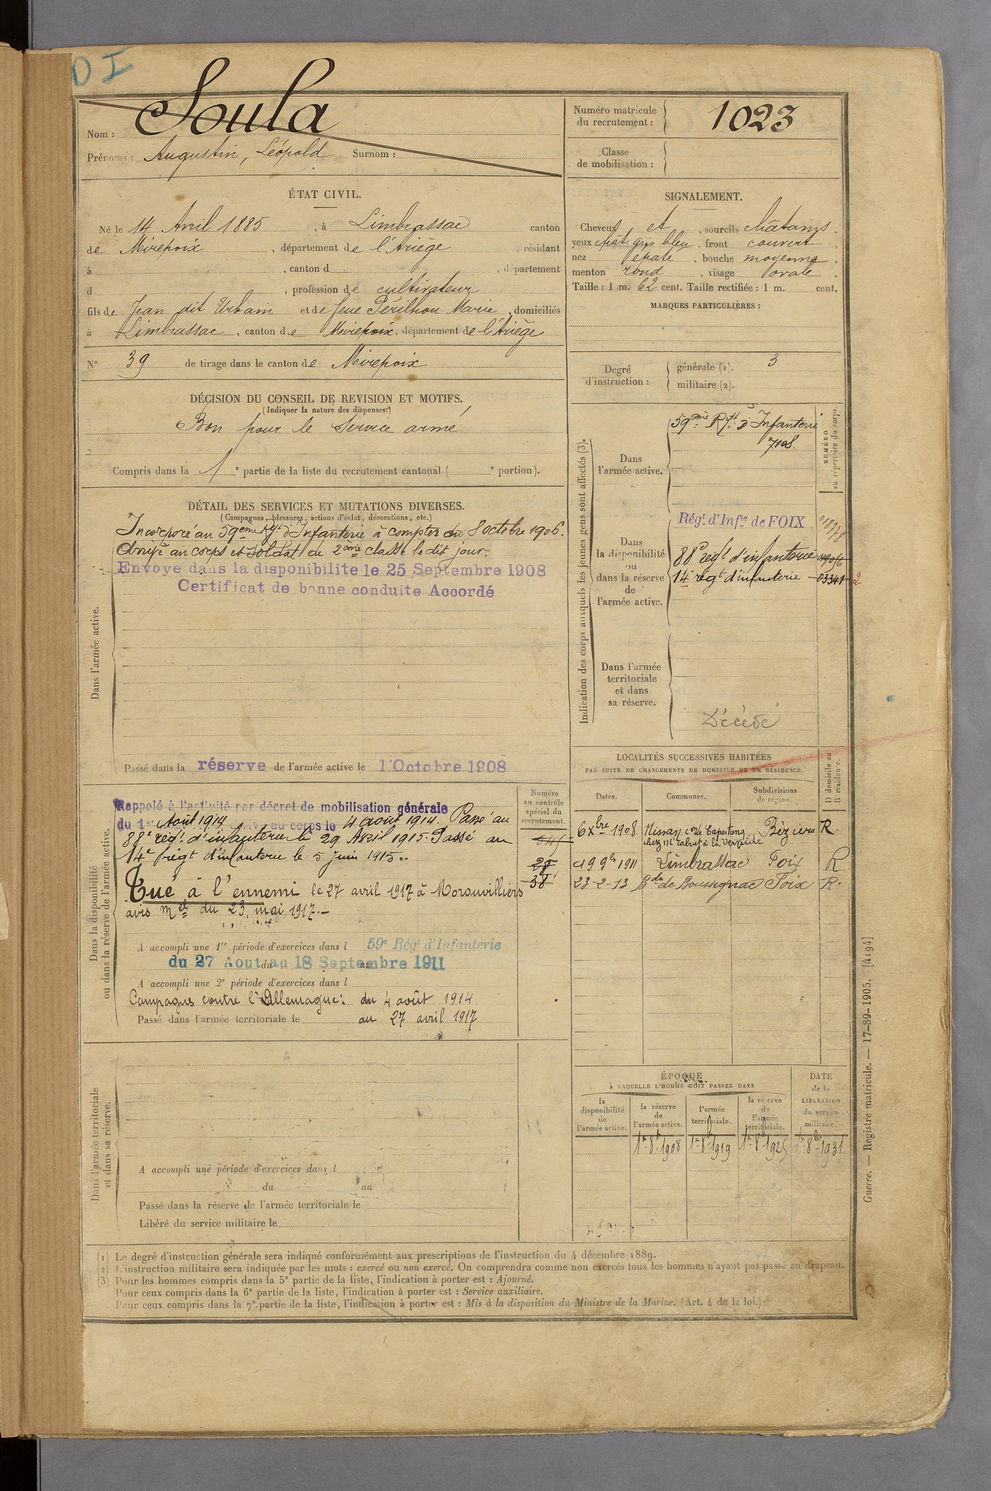 D I
Nom : Soula
Prénoms : Augustin, Léopold Surnom :
Numéro matricule du recrutement : 1023
Classe de mobilisation :
ÉTAT CIVIL.
Né le 14 Avril 1885, à Limbrassac canton
de Mirepoix, département de l'Ariège, résidant
à , canton d , département
d , profession de cultivateur
fils de Jean dit Urbain et de feue Périlhou Marie, domiciliés
à Limbrassac, canton de Mirepoix, département de l'Ariège
N° 39 de tirage dans le canton de Mirepoix
SIGNALEMENT.
Cheveux et , sourcils châtains
yeux chât gris bleu, front couvert
nez épaté, bouche moyenne
menton rond, visage ovale
Taille : 1 m. 62 cent. Taille rectifiée : 1 m. cent.
MARQUES PARTICULIÈRES :
Degré d'instruction : générale (1). 3
militaire (2).
DÉCISION DU CONSEIL DE REVISION ET MOTIFS.
(Indiquer la nature des dispenses.)
Bon pour le service armé
Compris dans la 1e partie de la liste du recrutement cantonal ( e portion).
DÉTAIL DES SERVICES ET MUTATIONS DIVERSES.
(Campagnes, blessures, actions d'éclat, décorations, etc.)
Dans l'armée active.
Incorporé au 59eme Rgt d'Infanterie à compter du 8 octobre 1906.
Arrivé au corps et soldat de 2eme classe le dit jour.
Envoyé dans la disponibilité le 25 Septembre 1908
Certificat de bonne conduite Accordé
Passé dans la réserve de l'armée active le 1 Octobre 1908
Indication des corps auxquels les jeunes gens sont affectés (3).
NUMÉRO au répertoire du corps.
Dans l'armée active.
59eme Rgt d'Infanterie
Dans la disponibilité ou dans la réserve de l'armée active.
Régt d'Infie de FOIX
88e régt d'infanterie
14e régt d'infanterie 03341
Dans l'armée territoriale et dans sa réserve.
Décédé
Dans la disponibilité ou dans la réserve de l'armée active.
Numéro au contrôle spécial du recrutement.
Rappelé à l'activité par décret de mobilisation générale
du 1er Août 1914 au corps le 4 août 1914. Passé au
88e régt d'infanterie le 29 Avril 1915. Passé au
14e régt d'infanterie le 5 juin 1915.
Tué à l'ennemi le 27 avril 1917 à Moronvilliers
avis mel du 23 mai 1917.
A accompli une 1re période d'exercices dans l 59e Régt d'Infanterie
du 27 Aout au 18 Septembre 1911
A accompli une 2e période d'exercices dans l
Campagne contre l'Allemagne : du 4 août 1914
Passé dans l'armée territoriale le au 27 avril 1917
LOCALITÉS SUCCESSIVES HABITÉES
PAR SUITE DE CHANGEMENTS DE DOMICILE OU DE RÉSIDENCE.
D domicile ou R résidence.
Dates. Communes. Subdivisions de région.
6 Xbre 1908 Nissan Béziers R
1911 Limbrassac Foix R
23-2-13 de Foix R
ÉPOQUE
À LAQUELLE L'HOMME DOIT PASSER DANS
DATE de la LIBÉRATION du service militaire.
la disponibilité de l'armée active.
la réserve de l'armée active.
l'armée territoriale.
la réserve de l'armée territoriale.
1er 8bre 1908 1er 8bre 1919 1er 8bre 1925 1er 8bre 1931
Dans l'armée territoriale et dans sa réserve.
A accompli une période d'exercices dans l
du au
Passé dans la réserve de l'armée territoriale le
Libéré du service militaire le
(1) Le degré d'instruction générale sera indiqué conformément aux prescriptions de l'instruction du 4 décembre 1889.
(2) L'instruction militaire sera indiquée par les mots : exercé ou non exercé. On comprendra comme non exercés tous les hommes n'ayant pas passé au drapeau.
(3) Pour les hommes compris dans la 5e partie de la liste, l'indication à porter est : Ajourné.
Pour ceux compris dans la 6e partie de la liste, l'indication à porter est : Service auxiliaire.
Pour ceux compris dans la 7e partie de la liste, l'indication à porter est : Mis à la disposition du Ministre de la Marine. (Art. 4 de la loi.)
Guerre. — Registre matricule. — 17-39-1905. [4194]